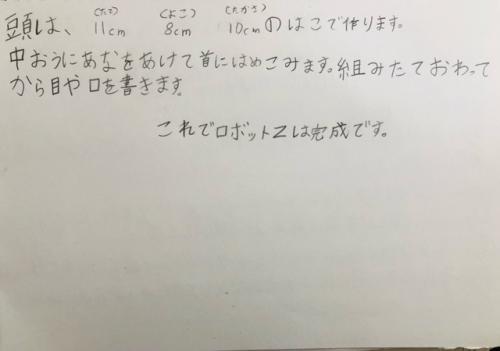 (たて) (よこ) (たかさ)
頭は、11cm 8cm 10cmのはこで作ります。
中おうにあなをあけて首にはめこみます。組みたておわって
から目や口を書きます。
これでロボットZは完成です。